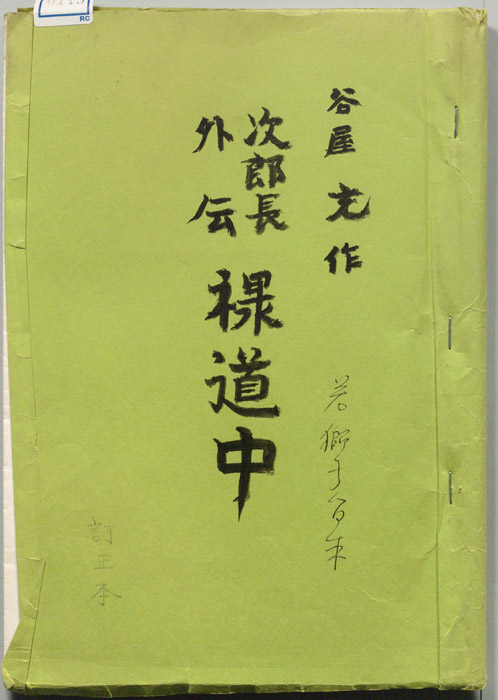 谷屋 充作
若獅子台本
次郎長
外伝
裸道中
訂正本
RC